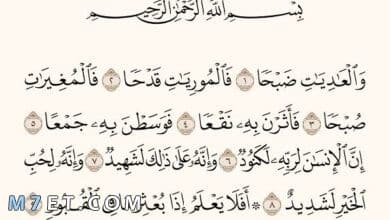 بِسْمِ اللَّهِ الرَّحْمَٰنِ الرَّحِيمِ
وَالْعَادِيَاتِ ضَبْحًا ١ فَالْمُورِيَاتِ قَدْحًا ٢ فَالْمُغِيرَاتِ
صُبْحًا ٣ فَأَثَرْنَ بِهِ نَقْعًا ٤ فَوَسَطْنَ بِهِ جَمْعًا ٥
إِنَّ الْإِنسَانَ لِرَبِّهِ لَكَنُودٌ ٦ وَإِنَّهُ عَلَىٰ ذَٰلِكَ لَشَهِيدٌ ٧ وَإِنَّهُ لِحُبِّ
الْخَيْرِ لَشَدِيدٌ ٨ ۞ أَفَلَا يَعْلَمُ إِذَا بُعْثِرَ مَا فِي الْقُبُورِ
M7ET.COM